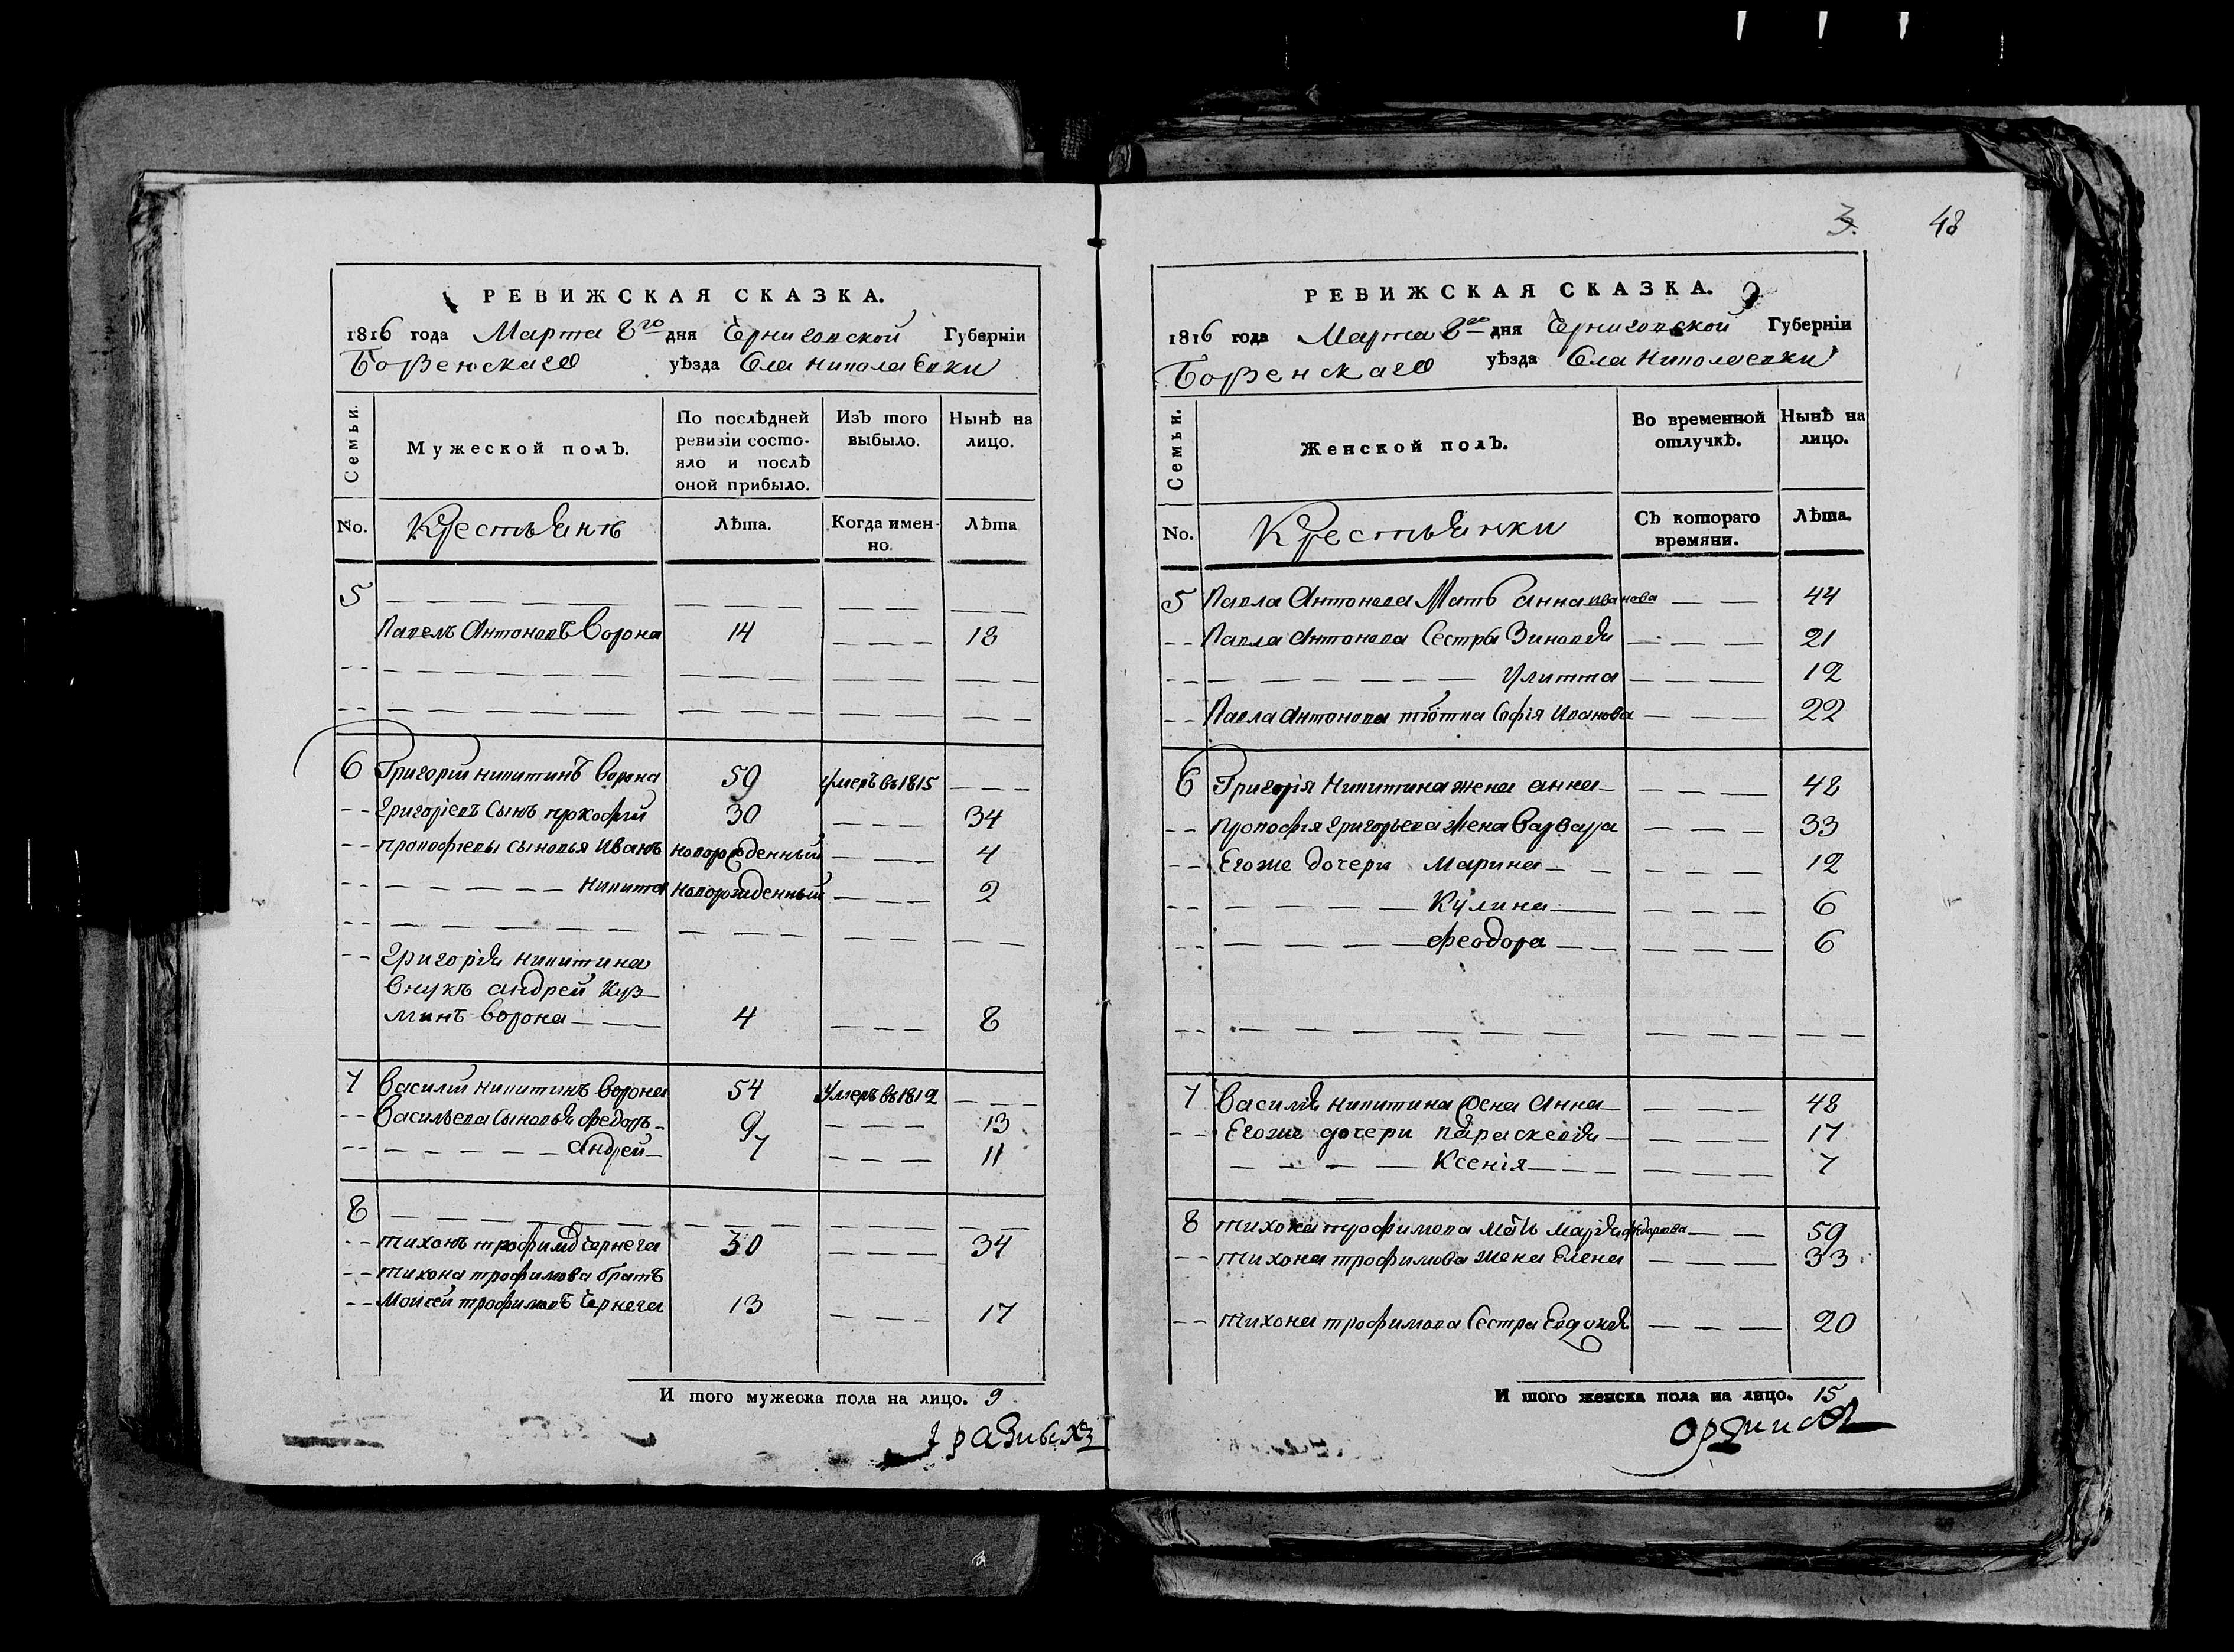 РЕВИЖСКАЯ СКАЗКА.
1816 года Марта 8го дня Черниговской Губерніи
Борзенскаго уѣзда Села Николаевки
Семьи.
Мужеской полъ.
По послѣдней ревизіи состояло и послѣ оной прибыло.
Изъ того выбыло.
Нынѣ на лицо.
No. Крестьянъ Лѣта. Когда именно. Лѣта
5
Павелъ Антоновъ Ворона 14 18
6 Григорій Никитинъ Ворона 59 умеръ въ 1815
Григоріевъ сынъ Прокофій 30 34
Прокофіевы сыновья Иванъ новорожденный 4
Никита новорожденный 2
Григорія Никитина
внукъ Андрей Куз-
минъ Ворона 4 8
7 Василій Никитинъ Ворона 54 умеръ въ 1812
Васильева сыновья Федоръ 9 13
Андрей 7 11
8
Тихонъ Трофимовъ Чернега 30 34
Тихона Трофимова братъ
Мойсей Трофимовъ Чернега 13 17
И того мужеска пола на лицо. 9
3. 48
РЕВИЖСКАЯ СКАЗКА. 9
1816 года Марта 8го дня Черниговской Губерніи
Борзенскаго уѣзда Села Николаевки
Семьи.
Женской полъ.
Во временной отлучкѣ.
Нынѣ на лицо.
No. Крестьянки Съ котораго времяни. Лѣта.
5 Павла Антонова Мать Анна Иванова 44
Павла Антонова Сестры Зиновія 21
Улитта 12
Павла Антонова тіотка Софія Иванова 22
6 Григорія Никитина жена Анна 48
Прокофія Григорьева жена Варвара 33
Егоже дочери Марина 12
Кулина 6
Феодора 6
7 Василія Никитина жена Анна 48
Егоже дочери Параскевія 17
Ксенія 7
8 Тихона Трофимова мать Марія Федорова 59
Тихона Трофимова жена Елена 33
Тихона Трофимова Сестра Евдокія 20
И того женска пола на лицо. 15